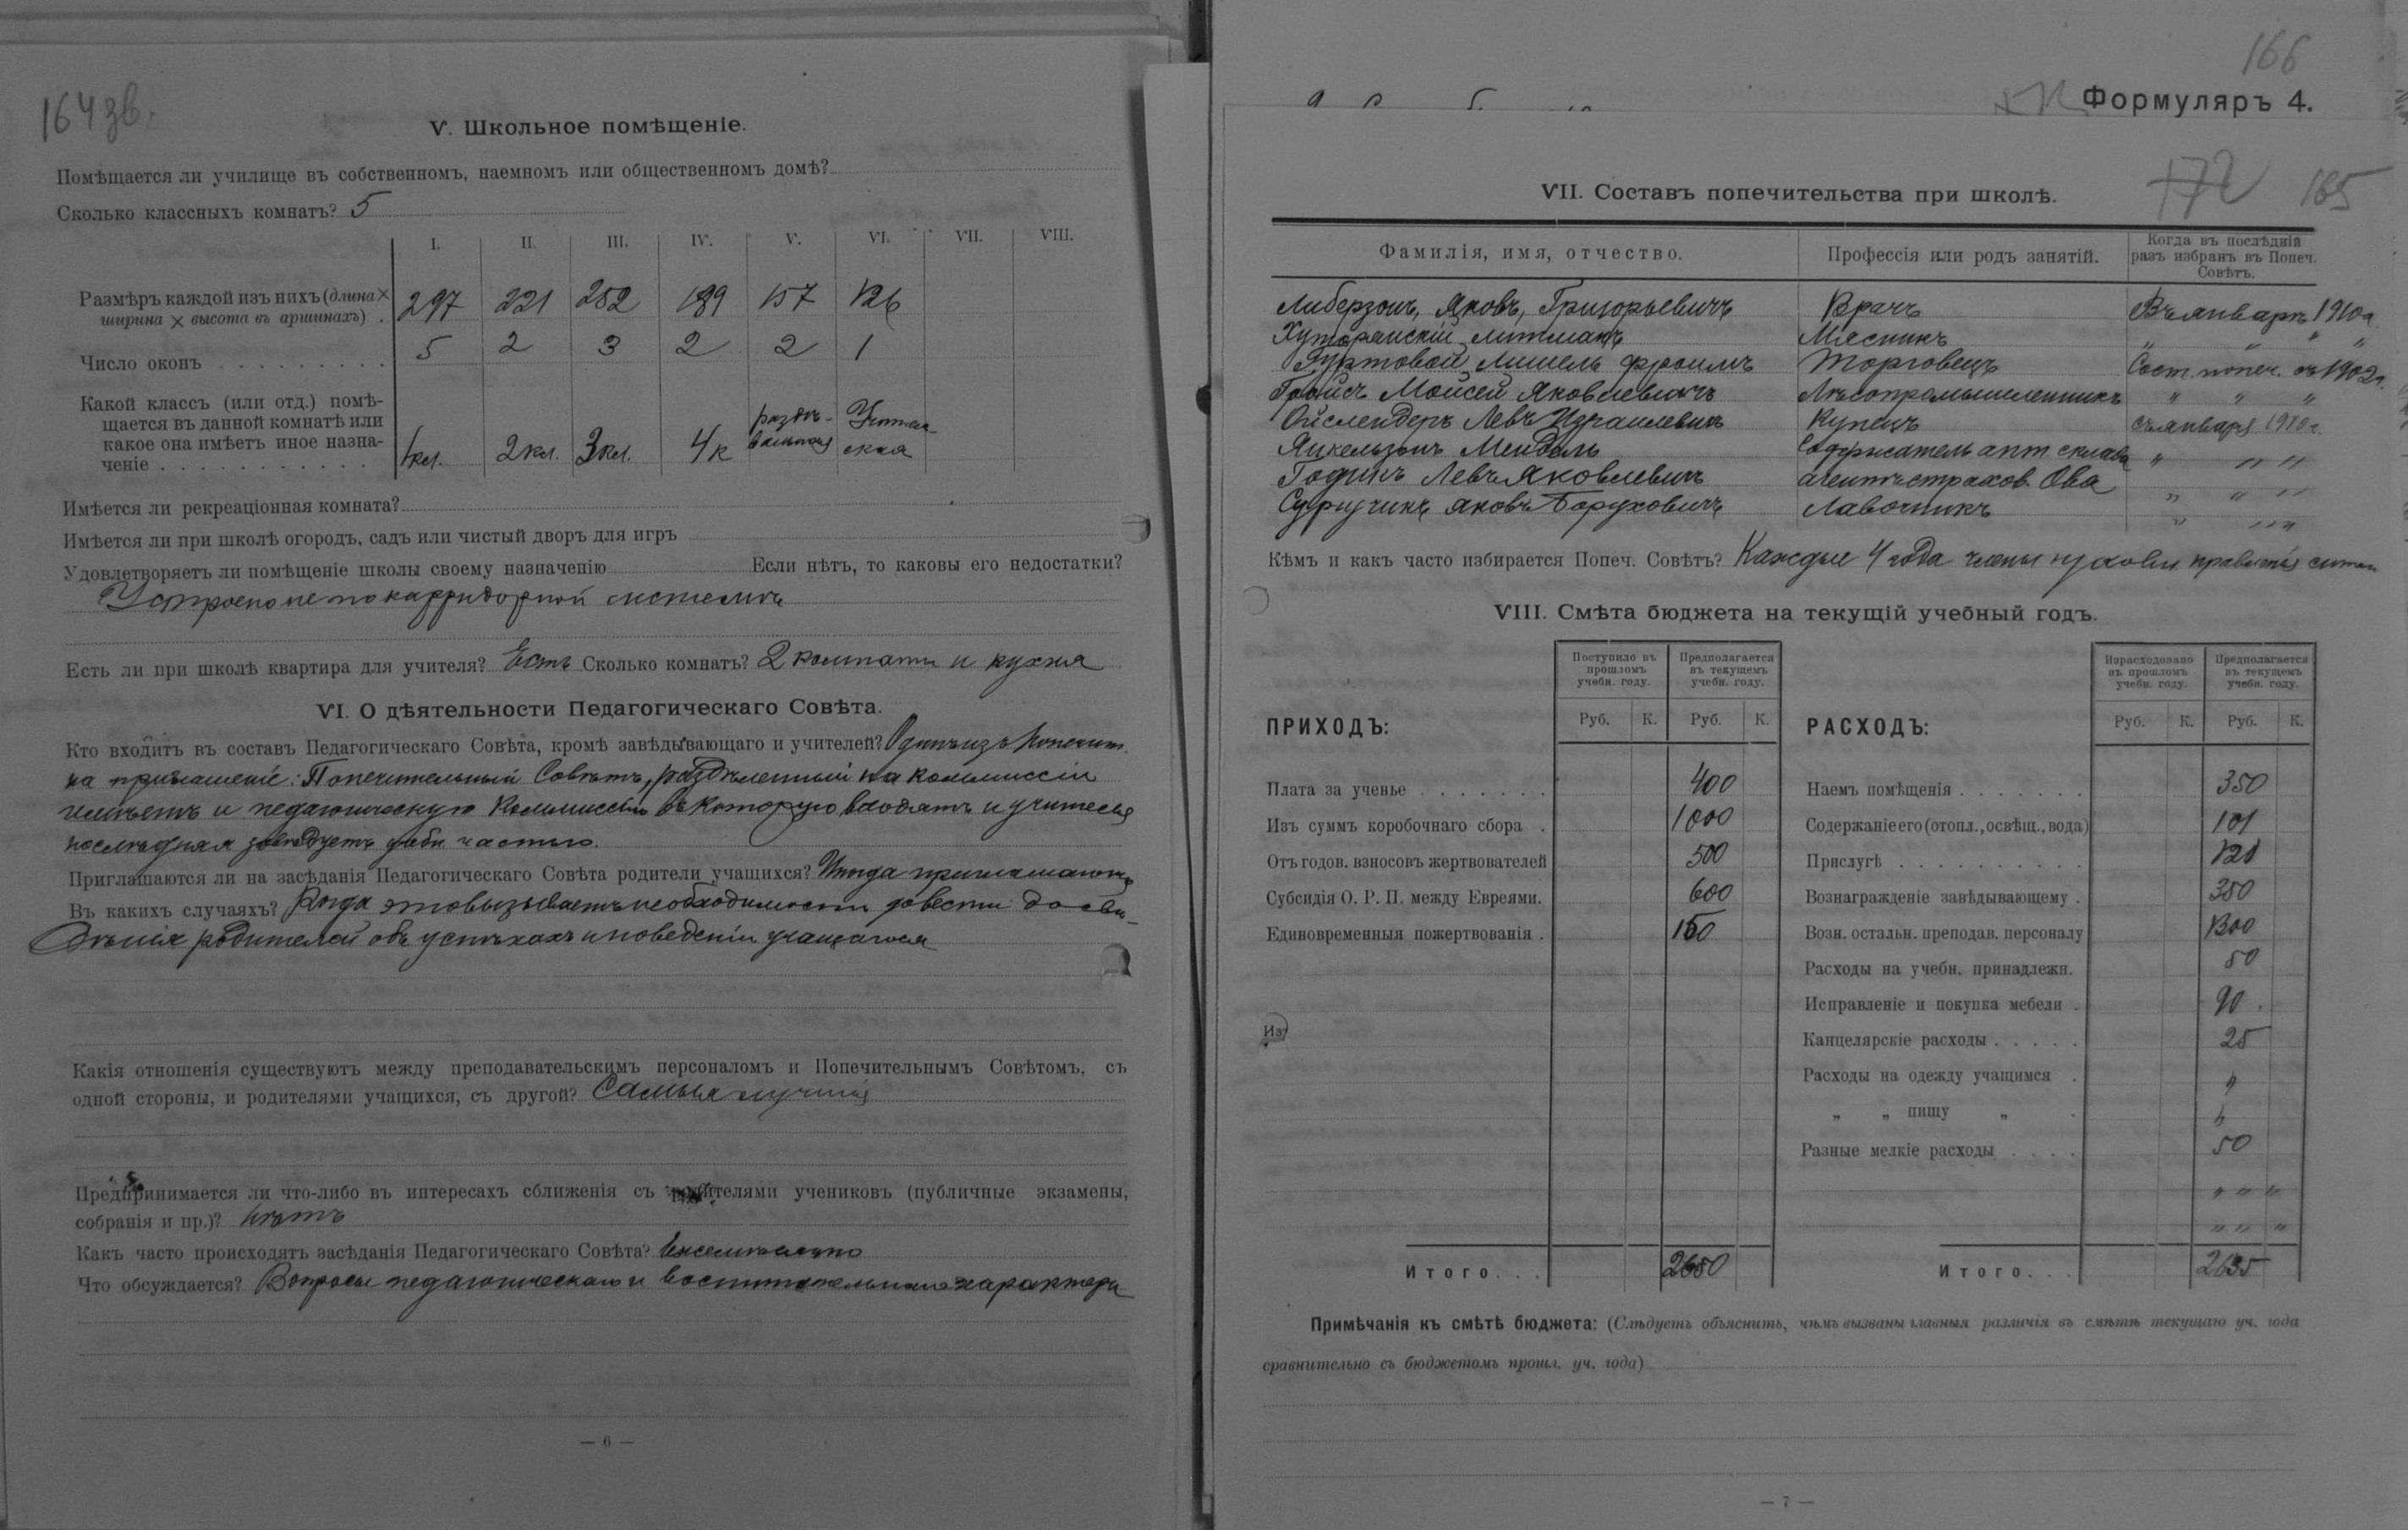 164 зв.
V. Школьное помѣщеніе.
Помѣщается ли училище въ собственномъ, наемномъ или общественномъ домѣ?
Сколько классныхъ комнатъ? 5
I. II. III. IV. V. VI. VII. VIII.
Размѣръ каждой изъ нихъ (длина × ширина × высота въ аршинахъ) . 297 221 252 189 157 126
Число оконъ . . . . . . . . . 5 2 3 2 2 1
Какой классъ (или отд.) помѣ-
щается въ данной комнатѣ или
какое она имѣетъ иное назна-
ченіе . . . . . . . . . . . 1 кл. 2 кл. 3 кл. 4 к раздѣ-вальная Учитель-ская
Имѣется ли рекреаціонная комната?
Имѣется ли при школѣ огородъ, садъ или чистый дворъ для игръ
Удовлетворяетъ ли помѣщеніе школы своему назначенію Если нѣтъ, то каковы его недостатки?
Устроено не по карридорной системѣ
Есть ли при школѣ квартира для учителя? Есть Сколько комнатъ? 2 комнаты и кухня
VI. О дѣятельности Педагогическаго Совѣта.
Кто входитъ въ составъ Педагогическаго Совѣта, кромѣ завѣдывающаго и учителей? Одинъ изъ попечит.
на приглашеніе: Попечительный Совѣтъ, раздѣленный на коммиссіи
имѣетъ и педагогическую Коммиссію въ которую входятъ и учителя
послѣдняя завѣдуетъ учебн. частью.
Приглашаются ли на засѣданія Педагогическаго Совѣта родители учащихся? Иногда приглашаются
Въ какихъ случаяхъ? Когда это вызывается необходимости довести до свѣ-
дѣнія родителей объ успѣхахъ и поведеніи учащагося
Какія отношенія существуютъ между преподавательскимъ персоналомъ и Попечительнымъ Совѣтомъ, съ
одной стороны, и родителями учащихся, съ другой? Самыя лучшія
Предпринимается ли что-либо въ интересахъ сближенія съ родителями учениковъ (публичные экзамены,
собранія и пр.)? Нѣтъ
Какъ часто происходятъ засѣданія Педагогическаго Совѣта? Ежемѣсячно
Что обсуждается? Вопросы педагогическаго и воспитательнаго характера
— 6 —
166
Формуляръ 4.
172 165
VII. Составъ попечительства при школѣ.
Фамилія, имя, отчество. Профессія или родъ занятій. Когда въ послѣдній разъ избранъ въ Попеч. Совѣтъ.
Либерзонъ, Яковъ, Григорьевичъ Врачъ Въ январѣ 1910 г.
Хуторанскій Литманъ Мясникъ " " " "
Гуртовой Мишель Фроимъ Торговецъ Сост. попеч. съ 1902 г.
Гройсъ Моисей Яковлевичъ Лѣсопромышленникъ " " "
Ойслендеръ Левъ Израилевичъ Купецъ съ января 1910 г.
Янкельзонъ Мендель Содержатель апт. склада " " "
Годинъ Левъ Яковлевичъ агентъ страхов. О-ва " " "
Яковъ Боруховичъ Лавочникъ " " "
Кѣмъ и какъ часто избирается Попеч. Совѣтъ? Каждые 4 года члены
VIII. Смѣта бюджета на текущій учебный годъ.
Поступило въ прошломъ учебн. году. Предполагается въ текущемъ учебн. году. Израсходовано въ прошломъ учебн. году. Предполагается въ текущемъ учебн. году.
ПРИХОДЪ: Руб. К. Руб. К. РАСХОДЪ: Руб. К. Руб. К.
Плата за ученье . . . . . . . 400 Наемъ помѣщенія . . . . . . . 350
Изъ суммъ коробочнаго сбора . 1000 Содержаніе его (отопл., освѣщ., вода) 101
Отъ годов. взносовъ жертвователей 500 Прислугѣ . . . . . . . . . . 120
Субсидія О. Р. П. между Евреями. 600 Вознагражденіе завѣдывающему . 350
Единовременныя пожертвованія . 150 Возн. остальн. преподав. персоналу 1300
Расходы на учебн. принадлежн. 50
Исправленіе и покупка мебели . 90
Из
Канцелярскіе расходы . . . . . 25
Расходы на одежду учащимся . "
„ „ пищу „ . "
Разные мелкіе расходы . . . . 50
" " "
" " "
Итого. . . 2650 Итого. . . 2635
Примѣчанія къ смѣтѣ бюджета: (Слѣдуетъ объяснить, чѣмъ вызваны главныя различія въ смѣтѣ текущаго уч. года
сравнительно съ бюджетомъ прошл. уч. года)
— 7 —